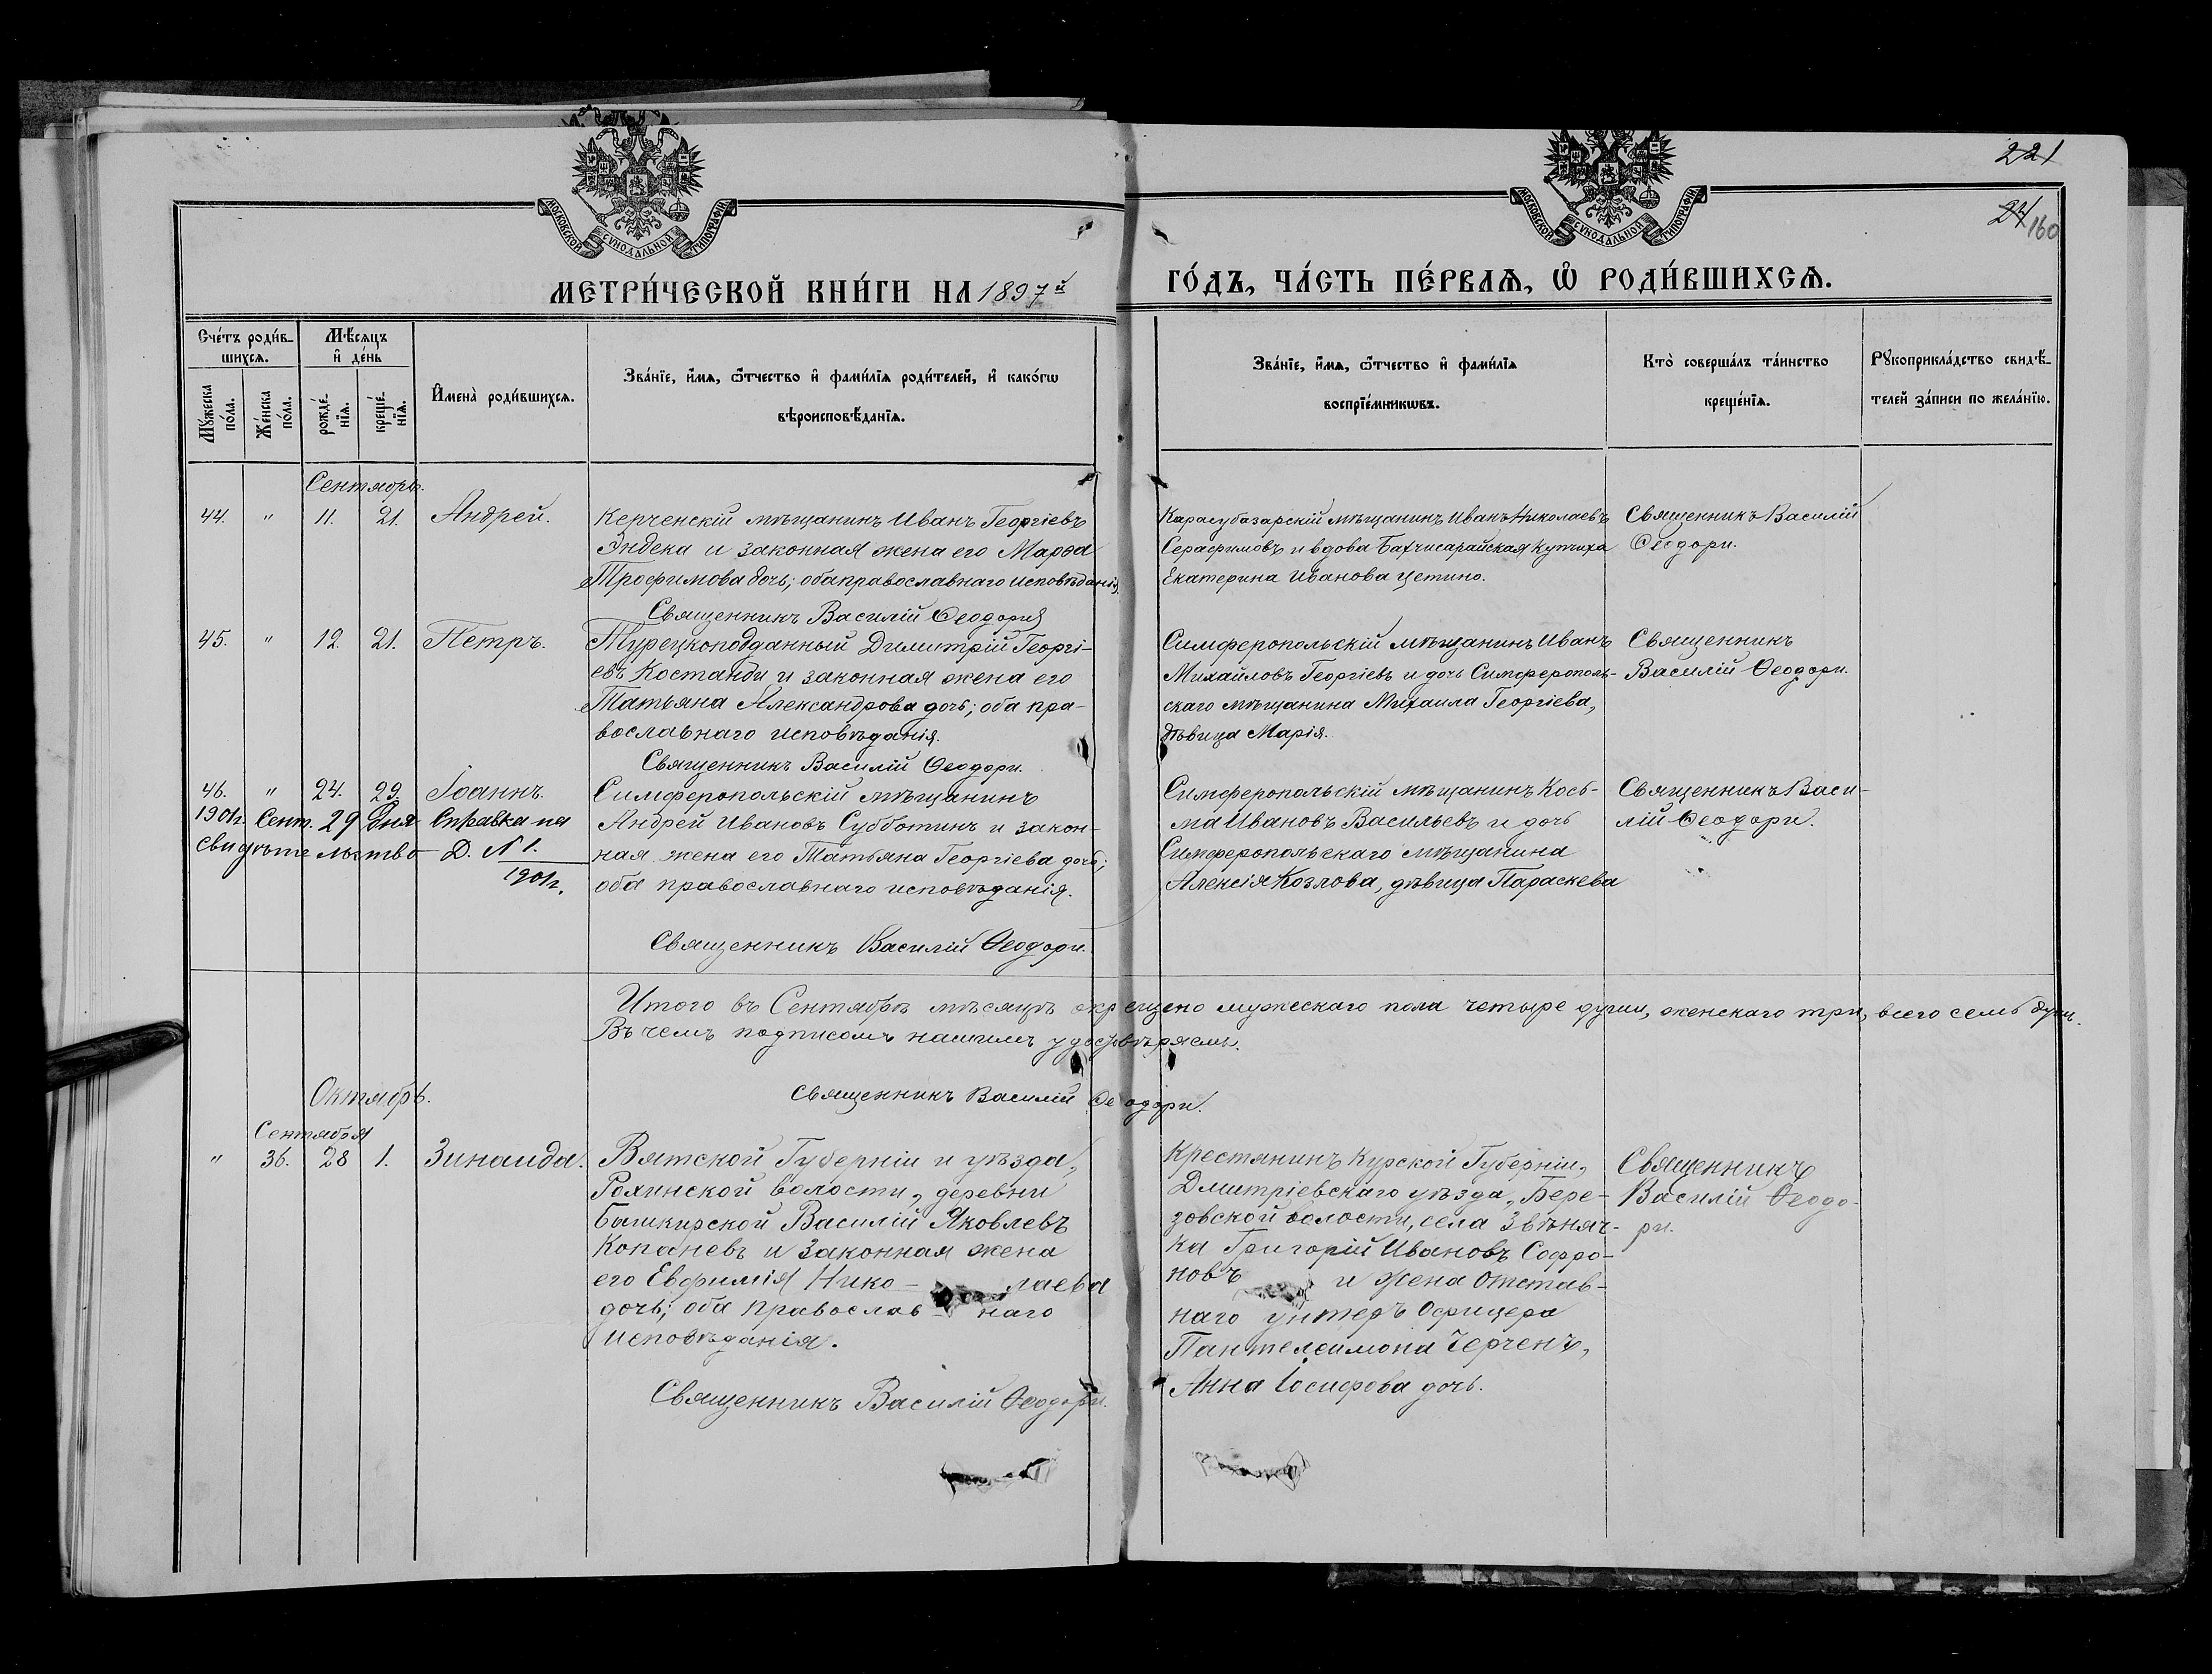 221
24
160
МОСКОВСКОЙ СѴНОДАЛЬНОЙ ТИПОГРАФІИ
МОСКОВСКОЙ СѴНОДАЛЬНОЙ ТИПОГРАФІИ
МЕТРИ́ЧЕСКОЙ КНИ́ГИ НА 1897й ГО́ДЪ, ЧА́СТЬ ПЕ́РВАѦ, Ѡ҆ РОДИ́ВШИХСѦ.
Сче́тъ роди́в-
шихсѧ.
Мѣ́сяцъ
и҆ де́нь
Мꙋ́жеска
по́ла.
Же́нска
по́ла.
рожде́-
нїѧ.
креще́-
нїѧ.
И҆мена̀ роди́вшихсѧ.
Зва́нїе, и҆́мѧ, ѻ҆́тчество и҆ фами́лїѧ роди́телей, и҆ како́гѡ
вѣроисповѣ́данїѧ.
Зва́нїе, и҆́мѧ, ѻ҆́тчество и҆ фами́лїѧ
воспрїе́мникѡвъ.
Кто̀ соверша́лъ та́инство
креще́нїѧ.
Рꙋкоприкла́дство свидѣ́-
телей за́писи по жела́нїю.
Сентябрь.
44. " 11. 21. Андрей.
Керченскій мѣщанинъ Иванъ Георгіевъ
Эндека и законная жена его Марѳа
Трофимова дочь; оба православнаго исповѣданія
Священникъ Василій Ѳеодори
Карасубазарскій мѣщанинъ Иванъ Николаевъ
Серафимовъ и вдова Бахчисарайская купчиха
Екатерина Иванова Цетино.
Священникъ Василій
Ѳеодори.
45. " 12. 21. Петръ.
Турецкоподданный Димитрій Георгі-
евъ Костанди и законная жена его
Татьяна Александрова дочь; оба пра-
вославнаго исповѣданія.
Священникъ Василій Ѳеодори.
Симферопольскій мѣщанинъ Иванъ
Михайловъ Георгіевъ и дочь Симферополь-
скаго мѣщанина Михаила Георгіева,
дѣвица Марія.
Священникъ
Василій Ѳеодори.
46. " 24. 29. Іоаннъ.
1901г. Сент. 29 дня Справка на
свидѣтельство Д. № 1.
1901г.
Симферопольскій мѣщанинъ
Андрей Ивановъ Субботинъ и закон-
ная жена его Татьяна Георгіева дочь;
оба православнаго исповѣданія.
Священникъ Василій Ѳеодори.
Симферопольскій мѣщанинъ Кось-
ма Ивановъ Васильевъ и дочь
Симферопольскаго мѣщанина
Алексія Козлова, дѣвица Параскева
Священникъ Васи-
лій Ѳеодори.
Итого въ Сентябрѣ мѣсяцѣ окрещено мужескаго пола четыре души, женскаго три, всего семь душъ.
Въ чемъ подписомъ нашимъ удостовѣряемъ.
Священникъ Василій Ѳеодори.
Октябрь.
Сентября
" 36. 28 1. Зинаида.
Вятской Губерніи и уѣзда,
волости, деревни
Башкирской Василій Яковлевъ
Копаневъ и законная жена
его Евфимія Нико- лаева
дочь; оба православ- наго
исповѣданія.
Священникъ Василій Ѳеодори.
Крестянинъ Курской Губерніи,
Дмитріевскаго уѣзда, Бере-
зовской волости, села Звѣняч-
ка Григорій Ивановъ Софро-
новъ и жена отстав-
наго унтеръ Офицера
Пантелеимона Черченъ,
Анна Іосифова дочь.
Священникъ
Василій Ѳеодо-
ри.